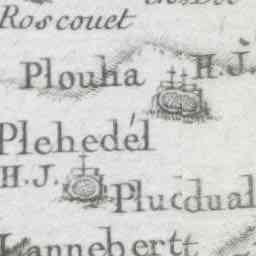 Roscouet
Plouha
H.J.
Plehedél
H.J.
Plucdual
Lannebertt